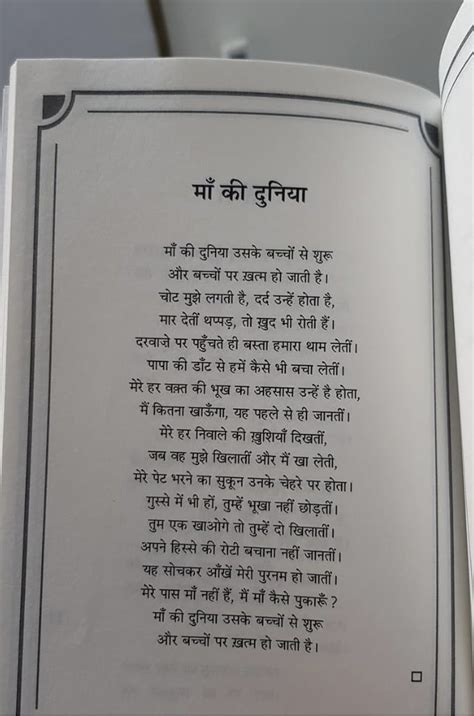 माँ की दुनिया
माँ की दुनिया उसके बच्चों से शुरू
और बच्चों पर ख़त्म हो जाती है।
चोट मुझे लगती है, दर्द उन्हें होता है,
मार देतीं थप्पड़, तो ख़ुद भी रोती हैं।
दरवाजे पर पहुँचते ही बस्ता हमारा थाम लेतीं।
पापा की डाँट से हमें कैसे भी बचा लेतीं।
मेरे हर वक़्त की भूख का अहसास उन्हें है होता,
मैं कितना खाऊँगा, यह पहले से ही जानतीं।
मेरे हर निवाले की ख़ुशियाँ दिखतीं,
जब वह मुझे खिलातीं और मैं खा लेती,
मेरे पेट भरने का सुकून उनके चेहरे पर होता।
गुस्से में भी हों, तुम्हें भूखा नहीं छोड़तीं।
तुम एक खाओगे तो तुम्हें दो खिलातीं।
अपने हिस्से की रोटी बचाना नहीं जानतीं।
यह सोचकर आँखें मेरी पुरनम हो जातीं।
मेरे पास माँ नहीं हैं, मैं माँ कैसे पुकारूँ ?
माँ की दुनिया उसके बच्चों से शुरू
और बच्चों पर ख़त्म हो जाती है।